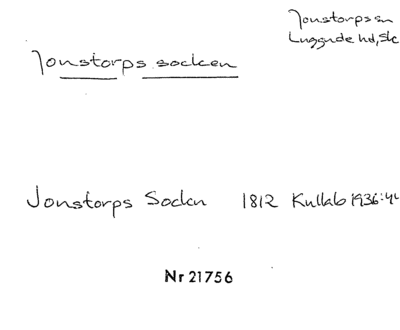 Jonstorps sn
Luggude hd, Sk
Jonstorps socken
Jonstorps Sockn 1812 Kullab 1936:44
Nr 21756